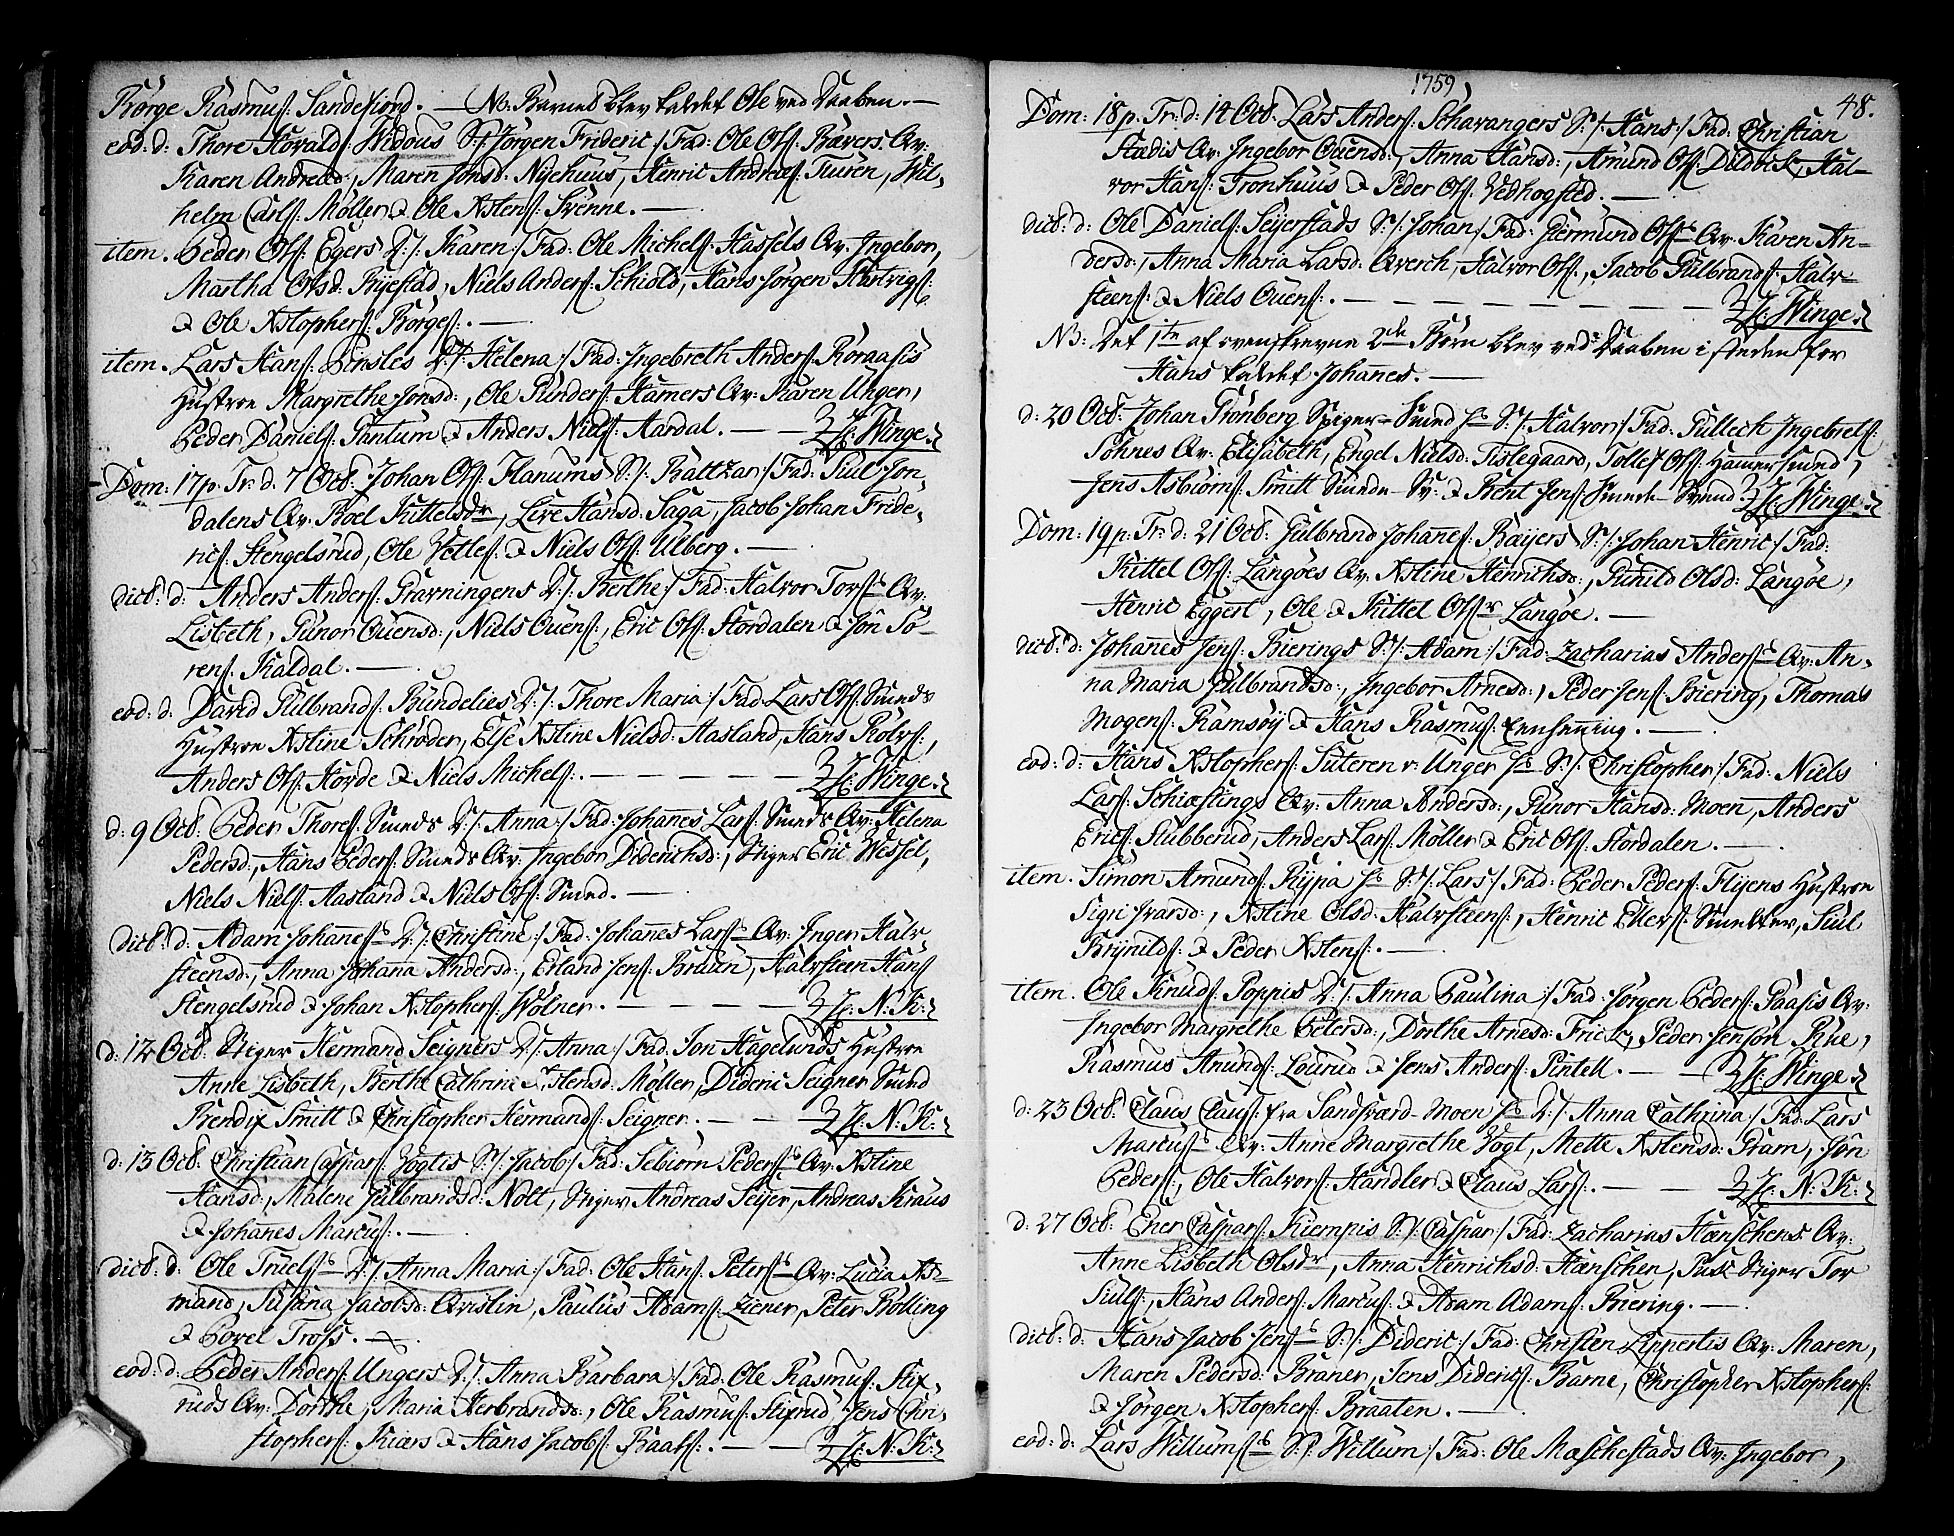 Børge Rasmus: Sandefiord. — NB: Barnet blev kaldet Ole ved Daaben. —
eod: d: Thore Hovald: Widous S:/: Jörgen Frideric:/ Fad: Ole Ols: Bævers Qv:
Karen Andread:, Maren Jonsd: Nyehuus, Henric Andreæs: Turen, Wil-
helm Carls: Møller & Ole Xstens: Svenne. —
item. Peder Ols: Egers D:/: Karen:/ Fad: Ole Michels: Hassels Qv: Ingebor,
Martha Olsd: Ryestad, Niels Anders: Schiold, Hans Jörgen Hartvigs:
& Ole Xstophers: Börges:. —
item. Lars Hans: Tensles D:/: Helena:/ Fad: Ingebreth Anders: Roraasis
Hustroe Margrethe Jonsd:, Ole Gunders: Hamers Qv: Karen Unger,
Peder Daniels: Pantum & Anders Niels: Aardal. — — H: Winge.
Dom: 17 p. Tr: d. 7 Octb: Johan Ols: Flanums S:/: Baltzar:/ Fad: Siul Jon-
dalens Qv: Boel Kittelsdr, Live Hansd: Saga, Jacob Johan Fride-
rics: Hengelsrud, Ole Vetles: & Niels Ols: Ulberg. —
dict: d: Anders Anders: Gravningens D:/: Berthe:/ Fad: Halvor Tors: Qv:
Lisbeth, Gunor Ouensd:, Niels Ouens:, Eric Ols: Stordalen & Jön Sö-
rens: Kaldal. —
eod: d. David Gulbrands: Bundelies D:/: Thore Maria:/ Fad: Lars Ols: Smeds
Hustroe Xstine Schröder, Else Xstine Nielsd: Aasland, Hans Rolvs:,
Anders Ols: Horde & Niels Michels:. — — — H: Winge.
d: 9 Octb: Peder Thores: Smeds D:/: Anna:/ Fad: Johanes Lars: Smeds Qv: Helena
Pedersd:, Hans Peders: Smeds Qv: Ingebor Diderichsd:, Stiger Eric Wessel,
Niels Niels: Aasland & Niels Ols: Smed. —
dict: d: Adam Johanes: D:/: Christine:/ Fad: Johanes Lars: Qv: Inger Halv
steensd:, Anna Johana Andersd:, Erland Jens: Braaen, Halvsteen Hans
Hengelsrud & Johan Xstophers: Wölner. — — — H: N: K:
d: 12 Octb: Stiger Hermand Seigners D:/: Anna:/ Fad: Jon Hagelunds Hustroe
Anne Lisbeth, Berthe Cathrine Xstensd: Møller, Dideric Seigner Smed
Bendix Smitt & Christopher Hermands: Seigner. — — H: N: K:
d: 13 Octb: Christian Caspars: Vogtis S:/: Jacob:/ Fad: Sebiörn Peders: Qv: Xstine
Hansd:, Malene Gulbrandsd: Nolt, Stiger Andreas Seyer, Andreas Kraus
& Johanes Marcus:. —
dict: d: Ole Truels: D:/: Anna Maria:/ Fad: Ole Hans: Peters: Qv: Lucia As-
mand, Susana Jacobsd: Qvislin, Paulus Adams: Ziener, Peter Bölling
& Povel Tross. —
eod: d: Peder Anders: Ungers D:/: Anna Barbara:/ Fad: Ole Rasmus: Stix-
ruds Qv: Dorthe, Maria Herbrandsd:, Ole Rasmus: Stixrud, Jens Chri-
stophers: Kiærs & Hans Jacobs: Baals:. — — H: N: K:
1759
48.
Dom: 18 p. Tr: d: 14 Octb: Lars Anders: Schavangers S:/: Hans:/ Fad: Christian
Stædis Qv: Ingebor Ouensd:, Anna Hansd:, Amund Ols: Duldoick, Hal-
vor Hans: Tronhuus & Peder Ols: Vedhogstad. —
dict: d: Ole Daniels: Seyerstads S:/: Johan:/ Fad: Giermund Ols: Qv: Karen An-
dersd:, Anna Maria Larsd: Qverch, Halvor Ols:, Jacob Gulbrands: Halv-
steens: & Niels Ouens:. — — — — — H: Winge.
NB: Det 1te af ovenskrevne 2de Børn blev ved Daaben i steden for
Hans kaldet Johanes. —
d: 20 Octb: Johan Grönberg Stiger-Smed S:/: Halvor:/ Fad: Gullech Ingebrets:
Sohnes Qv: Elisabeth, Engel Nielsd: Tislegaard, Tollef Ols: Hamersmed,
Jens Asbiörns: Smitt Smede-Sv: & Bent Jens: Smede-Svend. H: Winge.
Dom: 19 p: Tr: d: 21 Octb: Gulbrand Johanes: Bøyers S:/: Johan Henric:/ Fad:
Kittel Ols: Langöes Qv: Xstine Henrichsd:, Gunild Olsd: Langöe,
Henric Eggert, Ole & Kittel Ols: Langöe. —
dict: d: Johanes Jens: Bierings S:/: Adam:/ Fad: Zacharias Anders: Qv: An-
na Maria Gulbrandsd:, Ingebor Arnesd:, Peder Jens: Biering, Thomas
Mogens: Ramsöy & Hans Rasmus: Eenhenning. —
eod: d: Hans Xstophers: Suteren v: Unger S:/: Christopher:/ Fad: Niels
Lars: Schiæstings Qv: Anna Andersd:, Gunor Hansd: Moen, Anders
Erics: Stubberud, Anders Lars: Møller & Eric Ols: Stordalen. —
item. Simon Amunds: Rypa S:/: Lars:/ Fad: Peder Peders: Flyens Hustroe
Sigri Ivarsd:, Xstine Olsd: Halvsteens:, Henric Edlers: Smelter, Siul
Brynilds: & Peder Xstens:. —
item. Ole Knuds: Poppis D:/: Anna Paulina:/ Fad: Jörgen Peders: Paasis Qv:
Ingebor Margrethe Petersd:, Dorthe Arnesd: Frick, Peder Jensön Rue,
Rasmus Anunds: Lourud & Jens Anders: Pintell. — — H: Winge.
d: 23 Octb: Claus Claus: fra Sandsværd-Moen D:/: Anna Cathrina:/ Fad: Lars
Marcus: Qv: Anne Margrethe Vogt, Mette Xstensd: Gram, Jön
Peders:, Ole Halvors: Handler & Claus Lars:. — — H: N: K:
d: 27 Octb: Ener Caspars: Kiempis S:/: Caspar:/ Fad: Zacharias Hænschens Qv:
Anne Lisbeth Olsdr, Anna Henrichsd: Hænschen, Stiger Tor
Siuls:, Hans Anders: Marcus: & Adam Adams: Biering. —
dict: d: Hans Jacob Jens: S:/: Dideric:/ Fad: Christen Lippertis Qv: Maren,
Maren Pedersd: Braner, Jens Diderics: Barne, Christopher Xstophers:
& Jörgen Xstophers: Braaten. —
eod: d: Lars Willums: S:/: Willum:/ Fad: Ole Maschestads Qv: Ingebor,